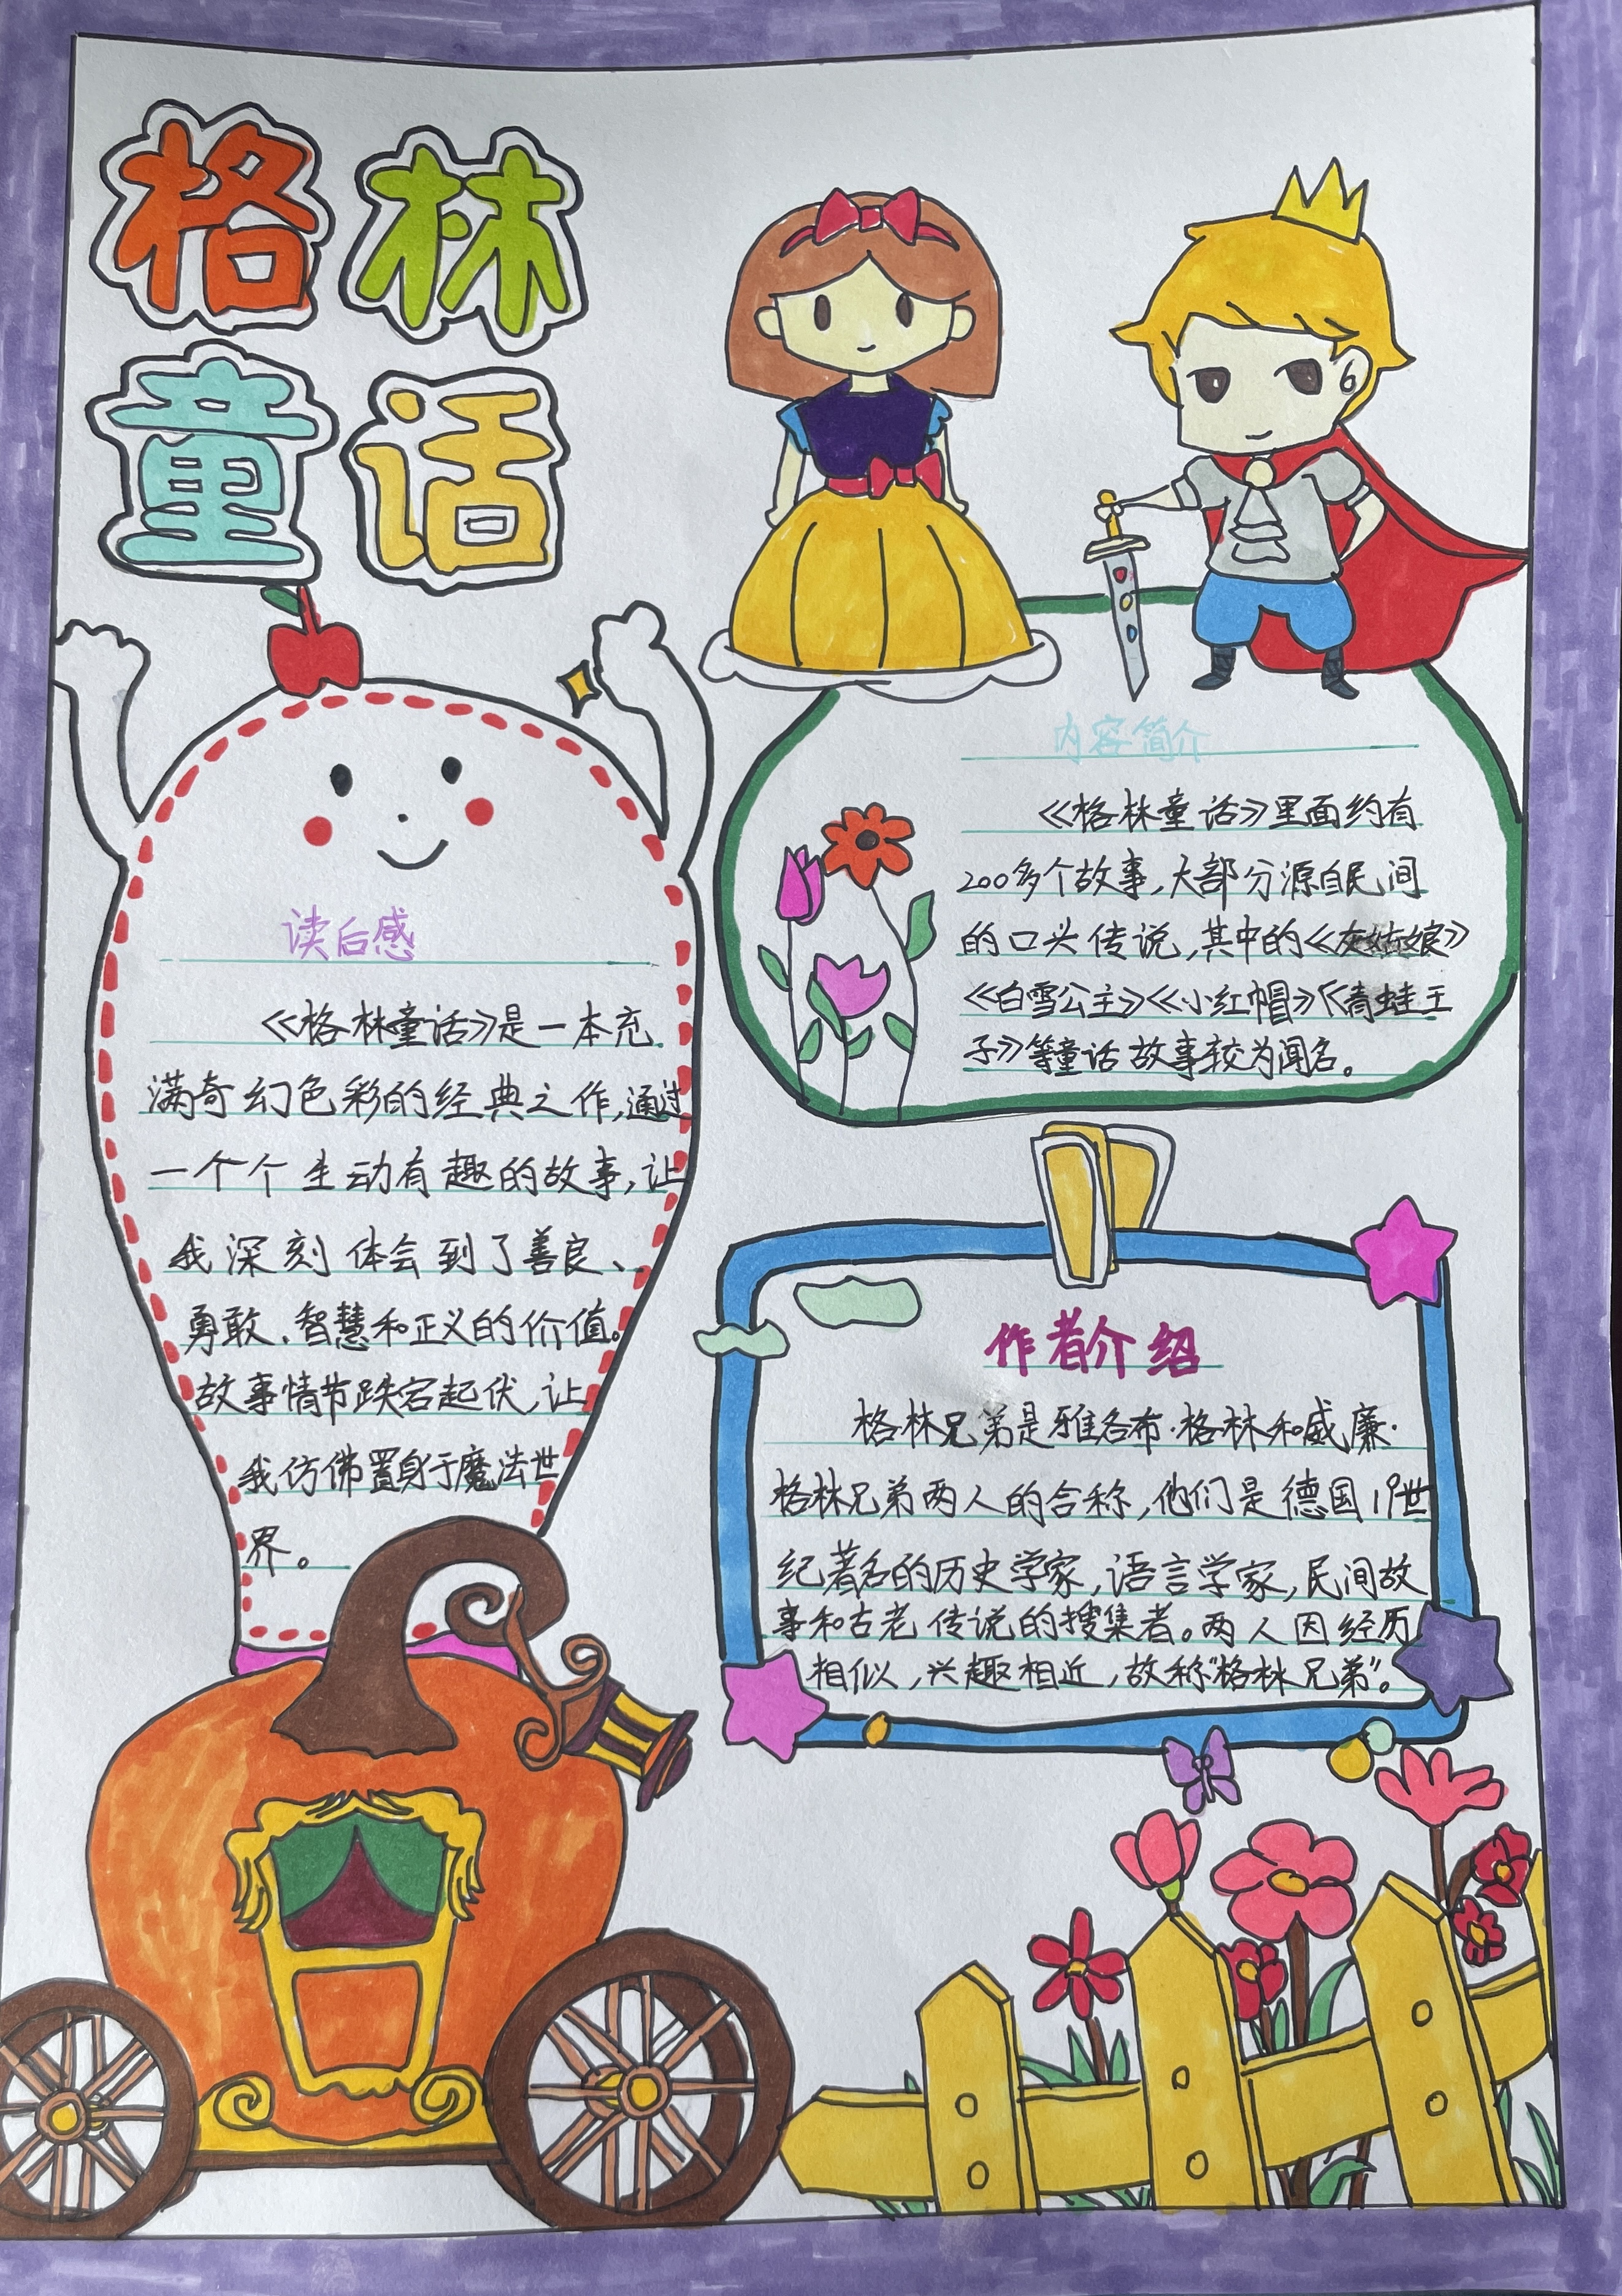 格林
童话
内容简介
《格林童话》里面约有
200多个故事,大部分源自民间
的口头传说,其中的《灰姑娘》
《白雪公主》《小红帽》《青蛙王
子》等童话故事较为闻名。
读后感
《格林童话》是一本充
满奇幻色彩的经典之作,通过
一个个生动有趣的故事,让
我深刻体会到了善良、
勇敢、智慧和正义的价值。
故事情节跌宕起伏,让
我仿佛置身于魔法世
界。
作者介绍
格林兄弟是雅各布·格林和威廉·
格林兄弟两人的合称,他们是德国19世
纪著名的历史学家,语言学家,民间故
事和古老传说的搜集者。两人因经历
相似,兴趣相近,故称“格林兄弟”。